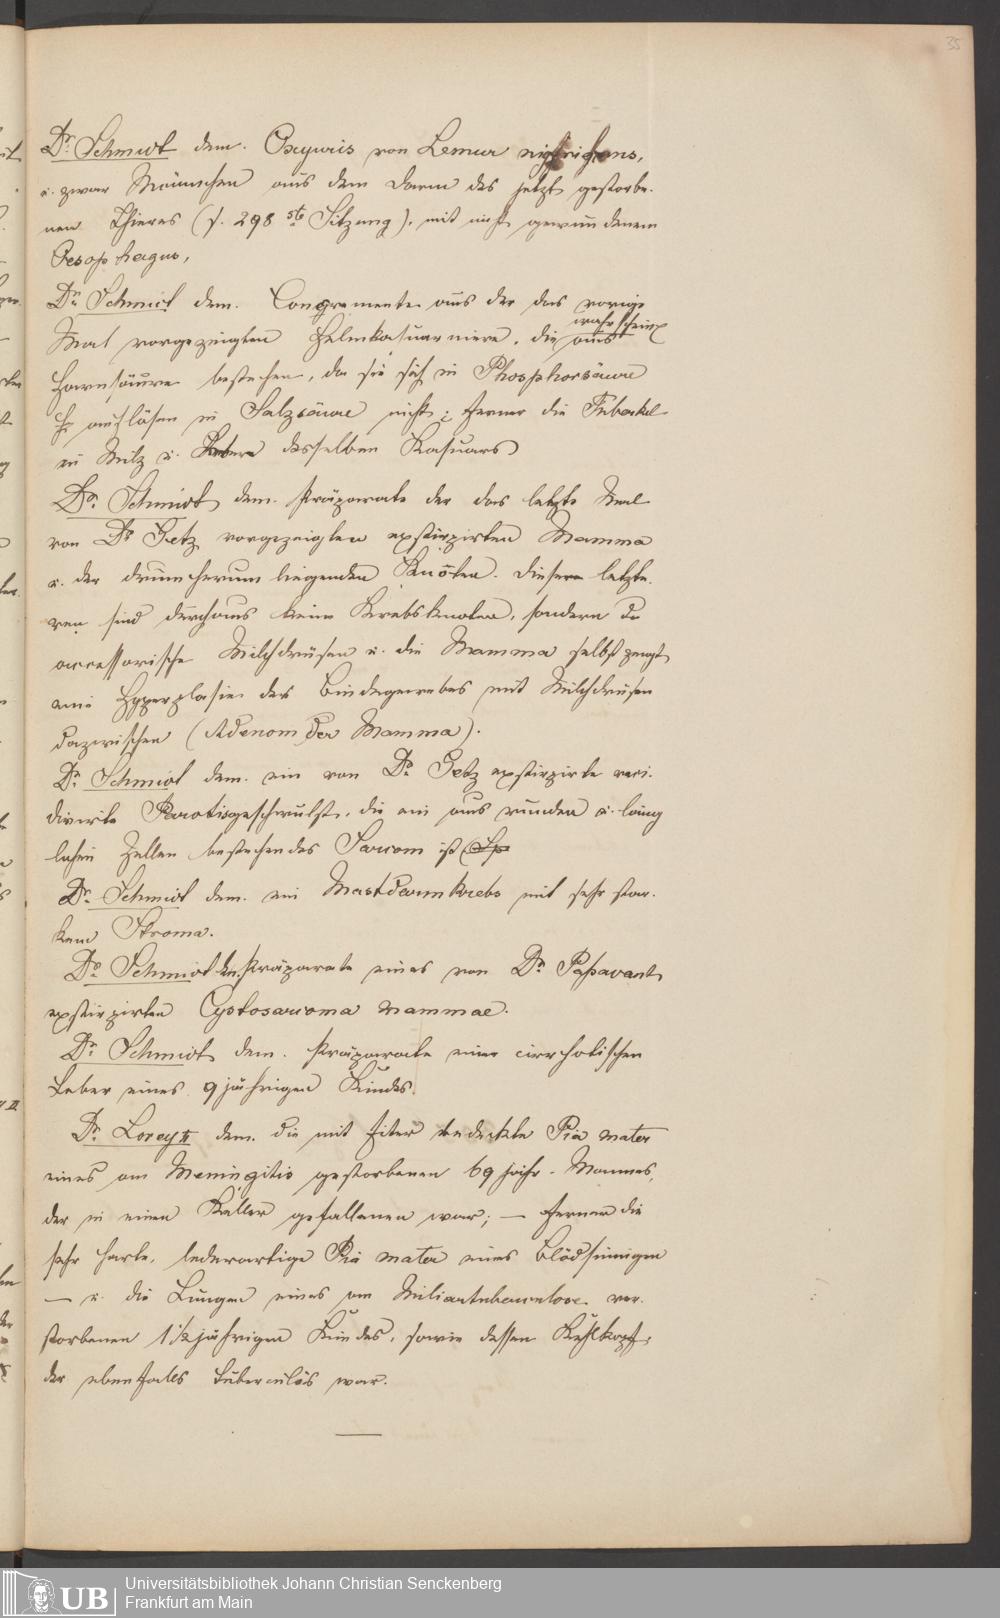 35
Dr. Schmidt dem. Oxyuris von Lemur nigrifrons,
u. zwar Männchen aus dem Darm des jetzt gestorbe-
nen Thieres (s. 298 ste Sitzung), mit nicht gewundenem
Oesophagus,
Dr. Schmidt dem. Concremente aus der das vorige
Mal vorgezeigten Helmkasuarniere, die wahrscheinl. aus
Harnsäure bestehen, da sie sich in Phosphorsäure
auflösen in Salzsäure nicht; ferner die Tuberkel
in Milz u. Leber desselben Kasuars
Dr. Schmidt dem. Präparate der das letzte Mal
von Dr Getz vorgezeigten exstirpirten Mamma
u. der drumherum liegenden Knoten. Diese letzte-
ren sind durchaus keine Krebsknoten, sondern
accessorische Milchdrüsen u. die Mamma selbst zeigt
eine Hyperplasie des Bindegewebes mit Milchdrüsen
dazwischen (Adenom der Mamma).
Dr. Schmidt dem. ein von Dr. Getz exstirpirte reci-
divirte Parotisgeschwulst, die ein aus runden u. läng
lichen Zellen bestehendes Sarcom ist
Dr. Schmidt dem. ein Mastdarmkrebs mit sehr star-
kem Stroma.
Dr. Schmidt dem. Präparate eines von Dr. Passavant
exstirpirten Cystosarcoma mammae.
Dr. Schmidt dem. Präparate einer cirrhotischen
Leber eines 9jährigen Kindes.
Dr. Lorey II dem. die mit Eiter bedeckte Pia mater
eines an Meningitis gestorbenen 69 jähr. Mannes,
der in einen Keller gefallenen war; — ferner die
sehr harte, lederartige Pia mater eines Blödsinnigen
— u. die Lungen eines an Miliartuberculose ver-
storbenen 1½jährigen Kindes, sowie dessen Kehlkopf,
der ebenfalls tuberculös war.
UB
Universitätsbibliothek Johann Christian Senckenberg
Frankfurt am Main